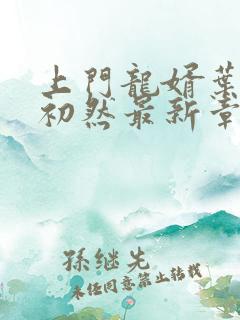 上門龍婿葉
初然最新章
孫继先
未经同意禁止转载